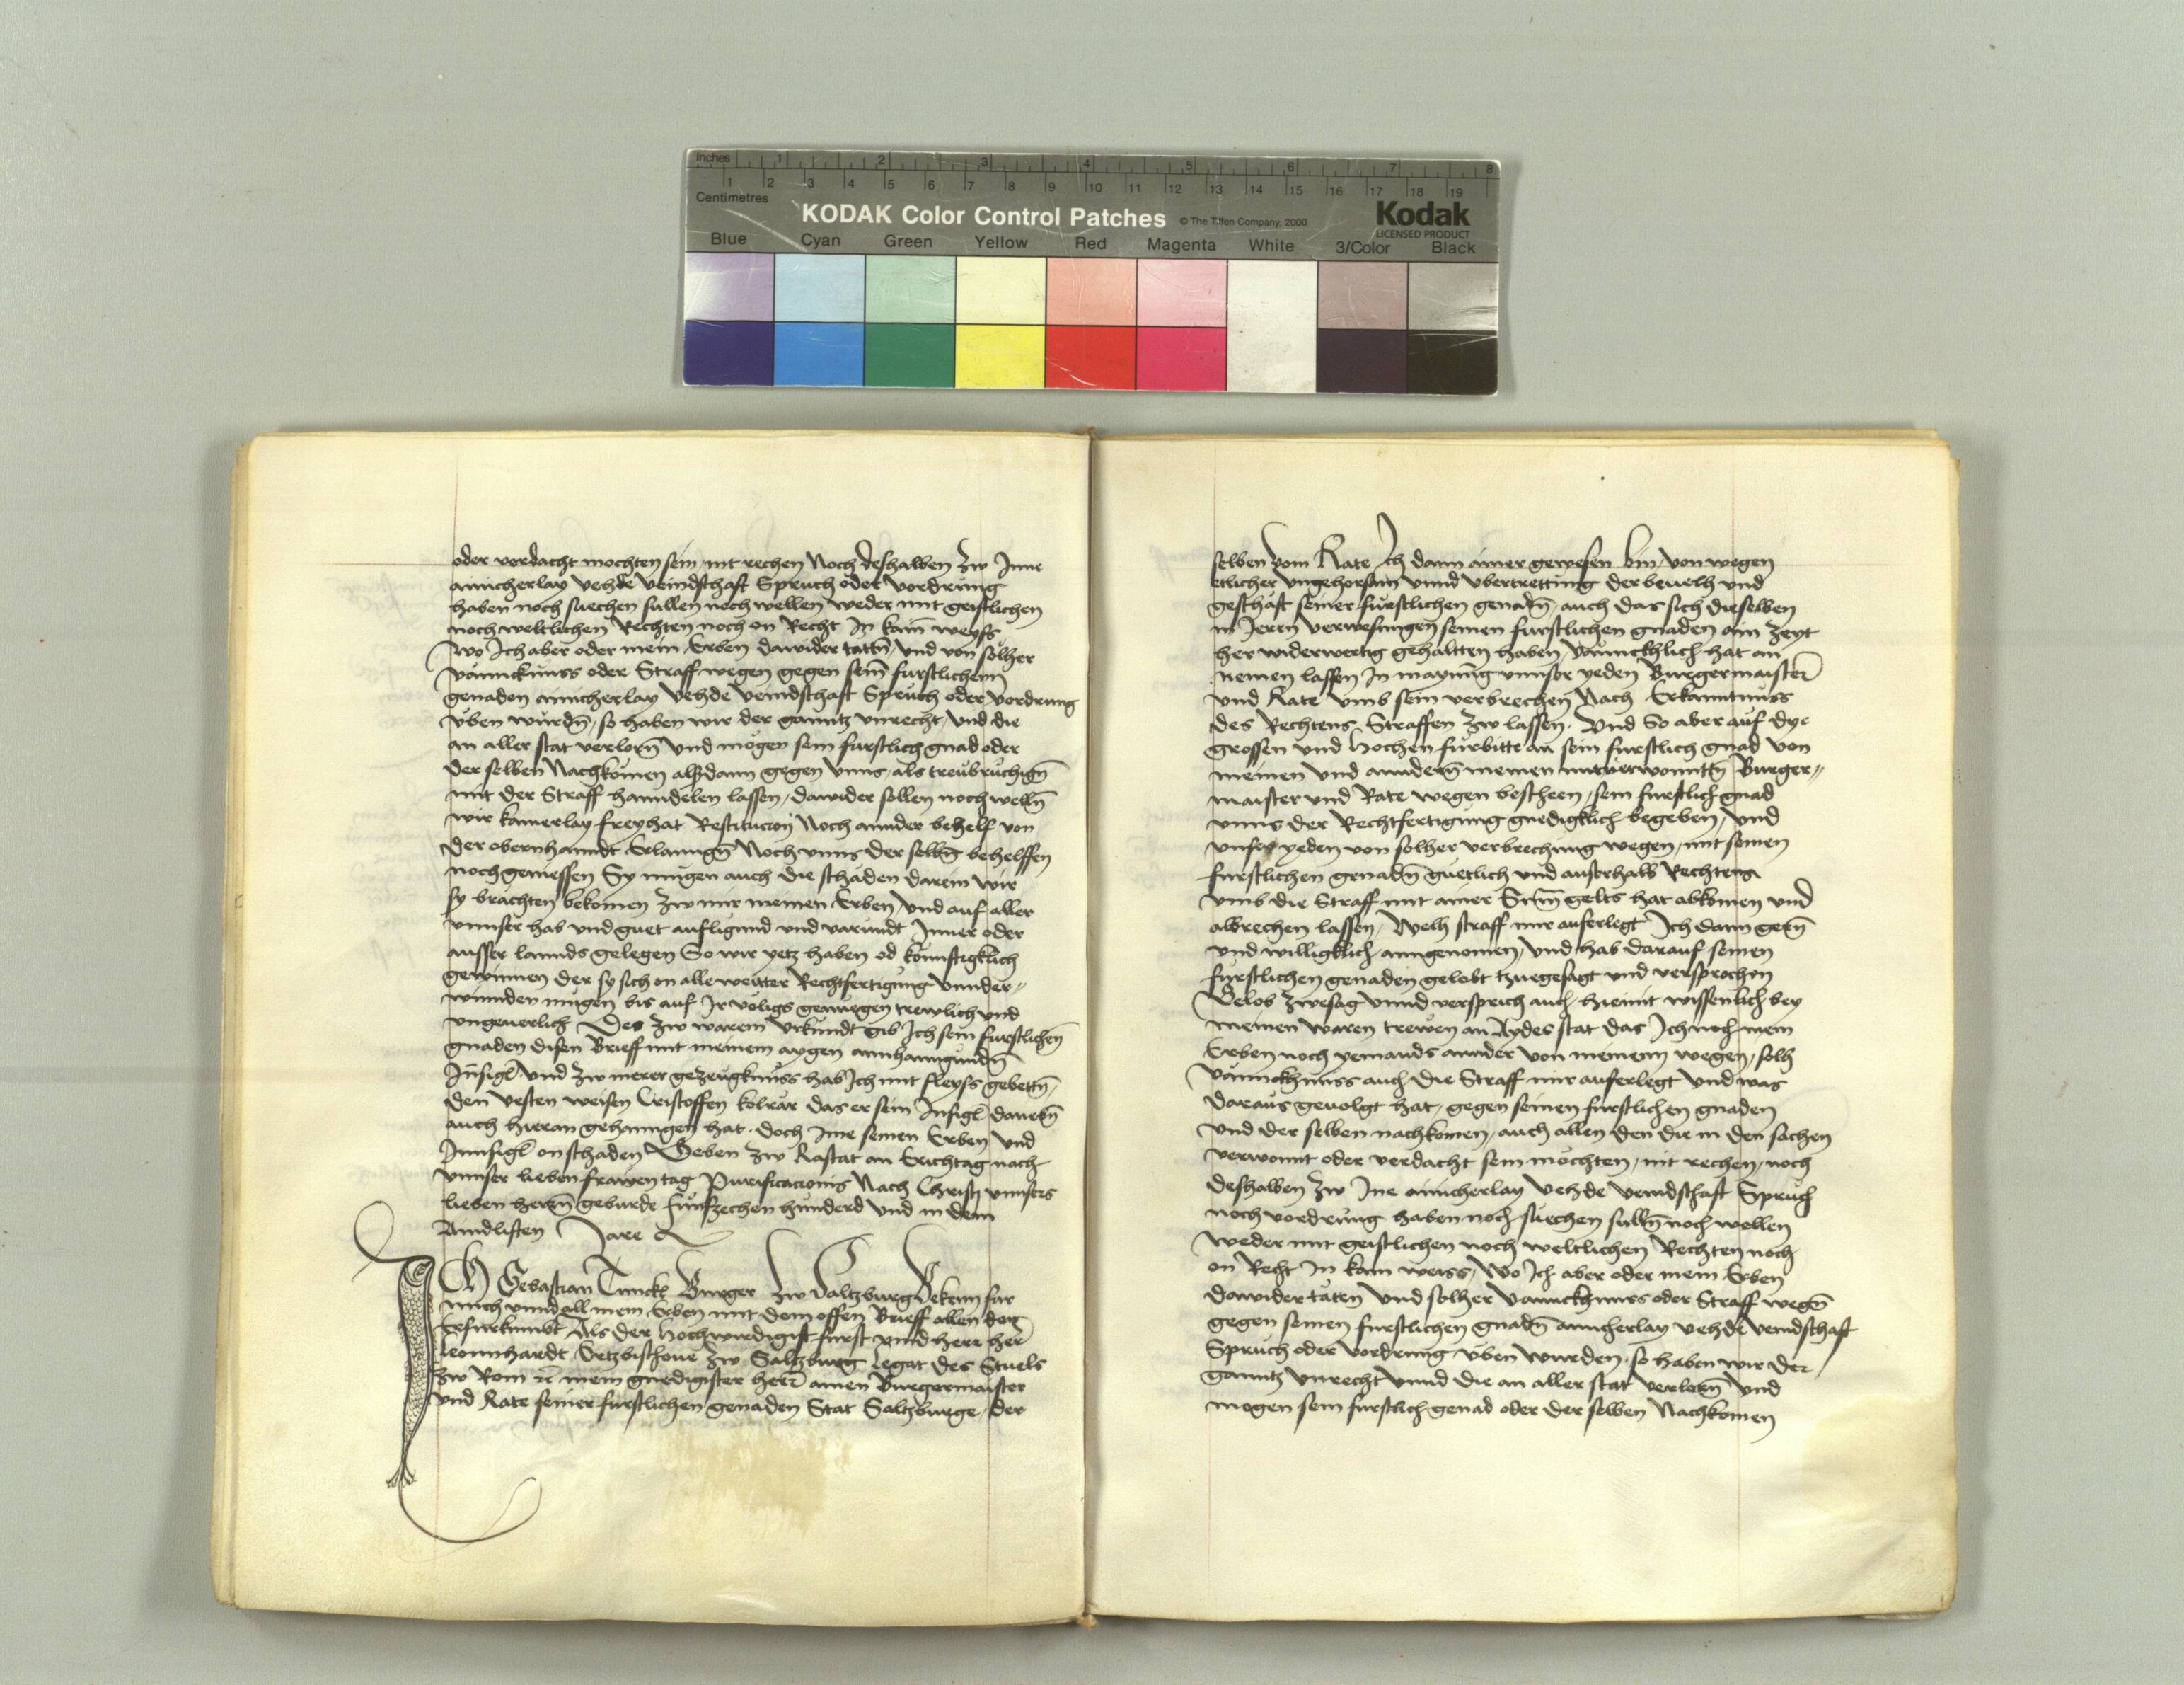 Inches 1 2 3 4 5 6 7 8
Centimetres 1 2 3 4 5 6 7 8 9 10 11 12 13 14 15 16 17 18 19
KODAK Color Control Patches © The Tiffen Company, 2000 Kodak
LICENSED PRODUCT
Blue Cyan Green Yellow Red Magenta White 3/Color Black
oder verdacht mochten sein, nit rechen Noch deshalben zw Inne
ainicherlay vehde veindschaft Spruch oder vordrung
haben noch suechen sullen noch wellen weder mit geistlichen
noch weltlichen Rechten noch on Recht In kain weyss
Wo Ich aber oder mein Erben dawider tattn̄, und von solher
vannckhnuss oder Straff wegen gegen sein̄ furstlichenn
genaden ainicherlay vehde veindschaft Spruch oder vordrung
uben wurdn̄, so haben wir der ganntz unrecht, und die
an aller stat verlorn̄ und mogen sein furstlich gnad oder
der selben Nachkomen alssdann gegen unns, als treubruchign̄
mit der Straff hanndelen lassen, dawider sollen noch welln̄
wir kainerlay freyhat Restitucion Noch annder behelf von
der obernhanndt Erlanngn̄ Noch unns der selbn̄ behelffen
noch geniessen Sy mugen auch die schaden darein wir
sy brachten bekomen zw mir meinen Erben, und auf aller
unnser hab und guet aufligund und varundt Inner oder
ausser lannds gelegen So wir yetz haben od konnftigklich
gewinnen der sy sich on alle weitter Rechtfertigung unnder⸗
winnden mugen bis auf Ir voligs genuegen trewlich und
ungeuerlich Des zw warem Urkundt gib Ich sein furstlichen̄
gnaden disen Brieff mit meinem aygen annhanngundn̄
Insigl̄. Und zw merer gezeugknuss hab Ich mit fleyss gebettn̄,
den vesten weisen Cristoffen kolrär das er sein Insigl̄
auch hieran gehanngen hat. doch Ime seinen Erben und
Innsigl̄ on schaden Geben zw Rastat an Erichtag nach
unnser lieben frawen tag Purificacionis Nach Christj unnsers
lieben herrn̄ geburde funfzechen hunderd und in dem
Aindliften Jare
ICH Sebastian Burger zw Saltzburg Bekenn fur
mich unnd all mein Erben mit dem offen Brieff allen den
Als der Hochwirdigist furst unnd herr her̄
leonnhardt Ertzbischoue zw Saltzburg Legat des Stuels
zw Rom mein gnedigister herr̄ ainen Burgermaister
und Rate seiner furstlichen genaden Stat Saltzburge, der
selben vom Rate Ich dann ainer gewesen bin, von wegen
etlicher ungehorsam unnd ubertrettung der beuelh und
geschäft seiner furstlichen genadn̄ auch das sich dieselben
in Jeren verwesungen seinen furstlichen gnaden ain zeyt
her widerwertig gehaltten haben vannckhlich hat an
nemen lassen In maynung unnser yeden Burgermaister
und Rate umb sein verbrechen Nach Erkanntnuss
des Rechtens Straffen zw lassen, Und So aber auf dye
grossen und Hochen furbitte an sein furstlich gnad von
meinen und annderen̄ meinen mitverwonntn̄ Burger⸗
maister und Rate wegen bescheen, sein furstlich gnad
unns der Rechtfertigung gnedigklich begeben, und
unser yeden von solher verbrechung wegen, mit seinen
furstlichen genadn̄ guetlich und ausserhalb Rechtens
umb die Straff mit ainer Sum̄ gelts hat abkomen und
abrechen lassen, Welh straff mir auferlegt Ich dann gern̄
und willigklich anngenomen, und hab darauf seinen
furstlichen genaden gelobt tzuegesagt und versprochen
Gelob zwesag unnd versprich auch hiemit wissenlich bey
meinen waren trewen an Aydes stat das Ich noch mein
Erben noch yemands annder von meinenn wegen, solh
vannckhnuss auch die Straff mir auferlegt und was
daraus geuolgt hat, gegen seinen furstlichen gnaden
und der selben nachkomen, auch allen den die in den sachen
verwonnt oder verdacht sein mochten, nit rechen, noch
deshalben zw Ine ainicherlay vehde veindschaft Spruch
noch vordrung haben noch suechen sulln̄ noch wellen
weder mit geistlichen noch weltlichen Rechten noch
on Recht In kain weiss, Wo Ich aber oder mein Erben
dawider täten und solher vannckhnuss oder Straff wegn̄
gegen seinen furstlichen gnadn̄ ainicherlay vehde veindschaft
Spruch oder vordrung uben wurden, so haben wir der
ganntz unrecht unnd die an aller stat verlorn̄ und
mogen sein furstlich genad oder der selben Nachkomen